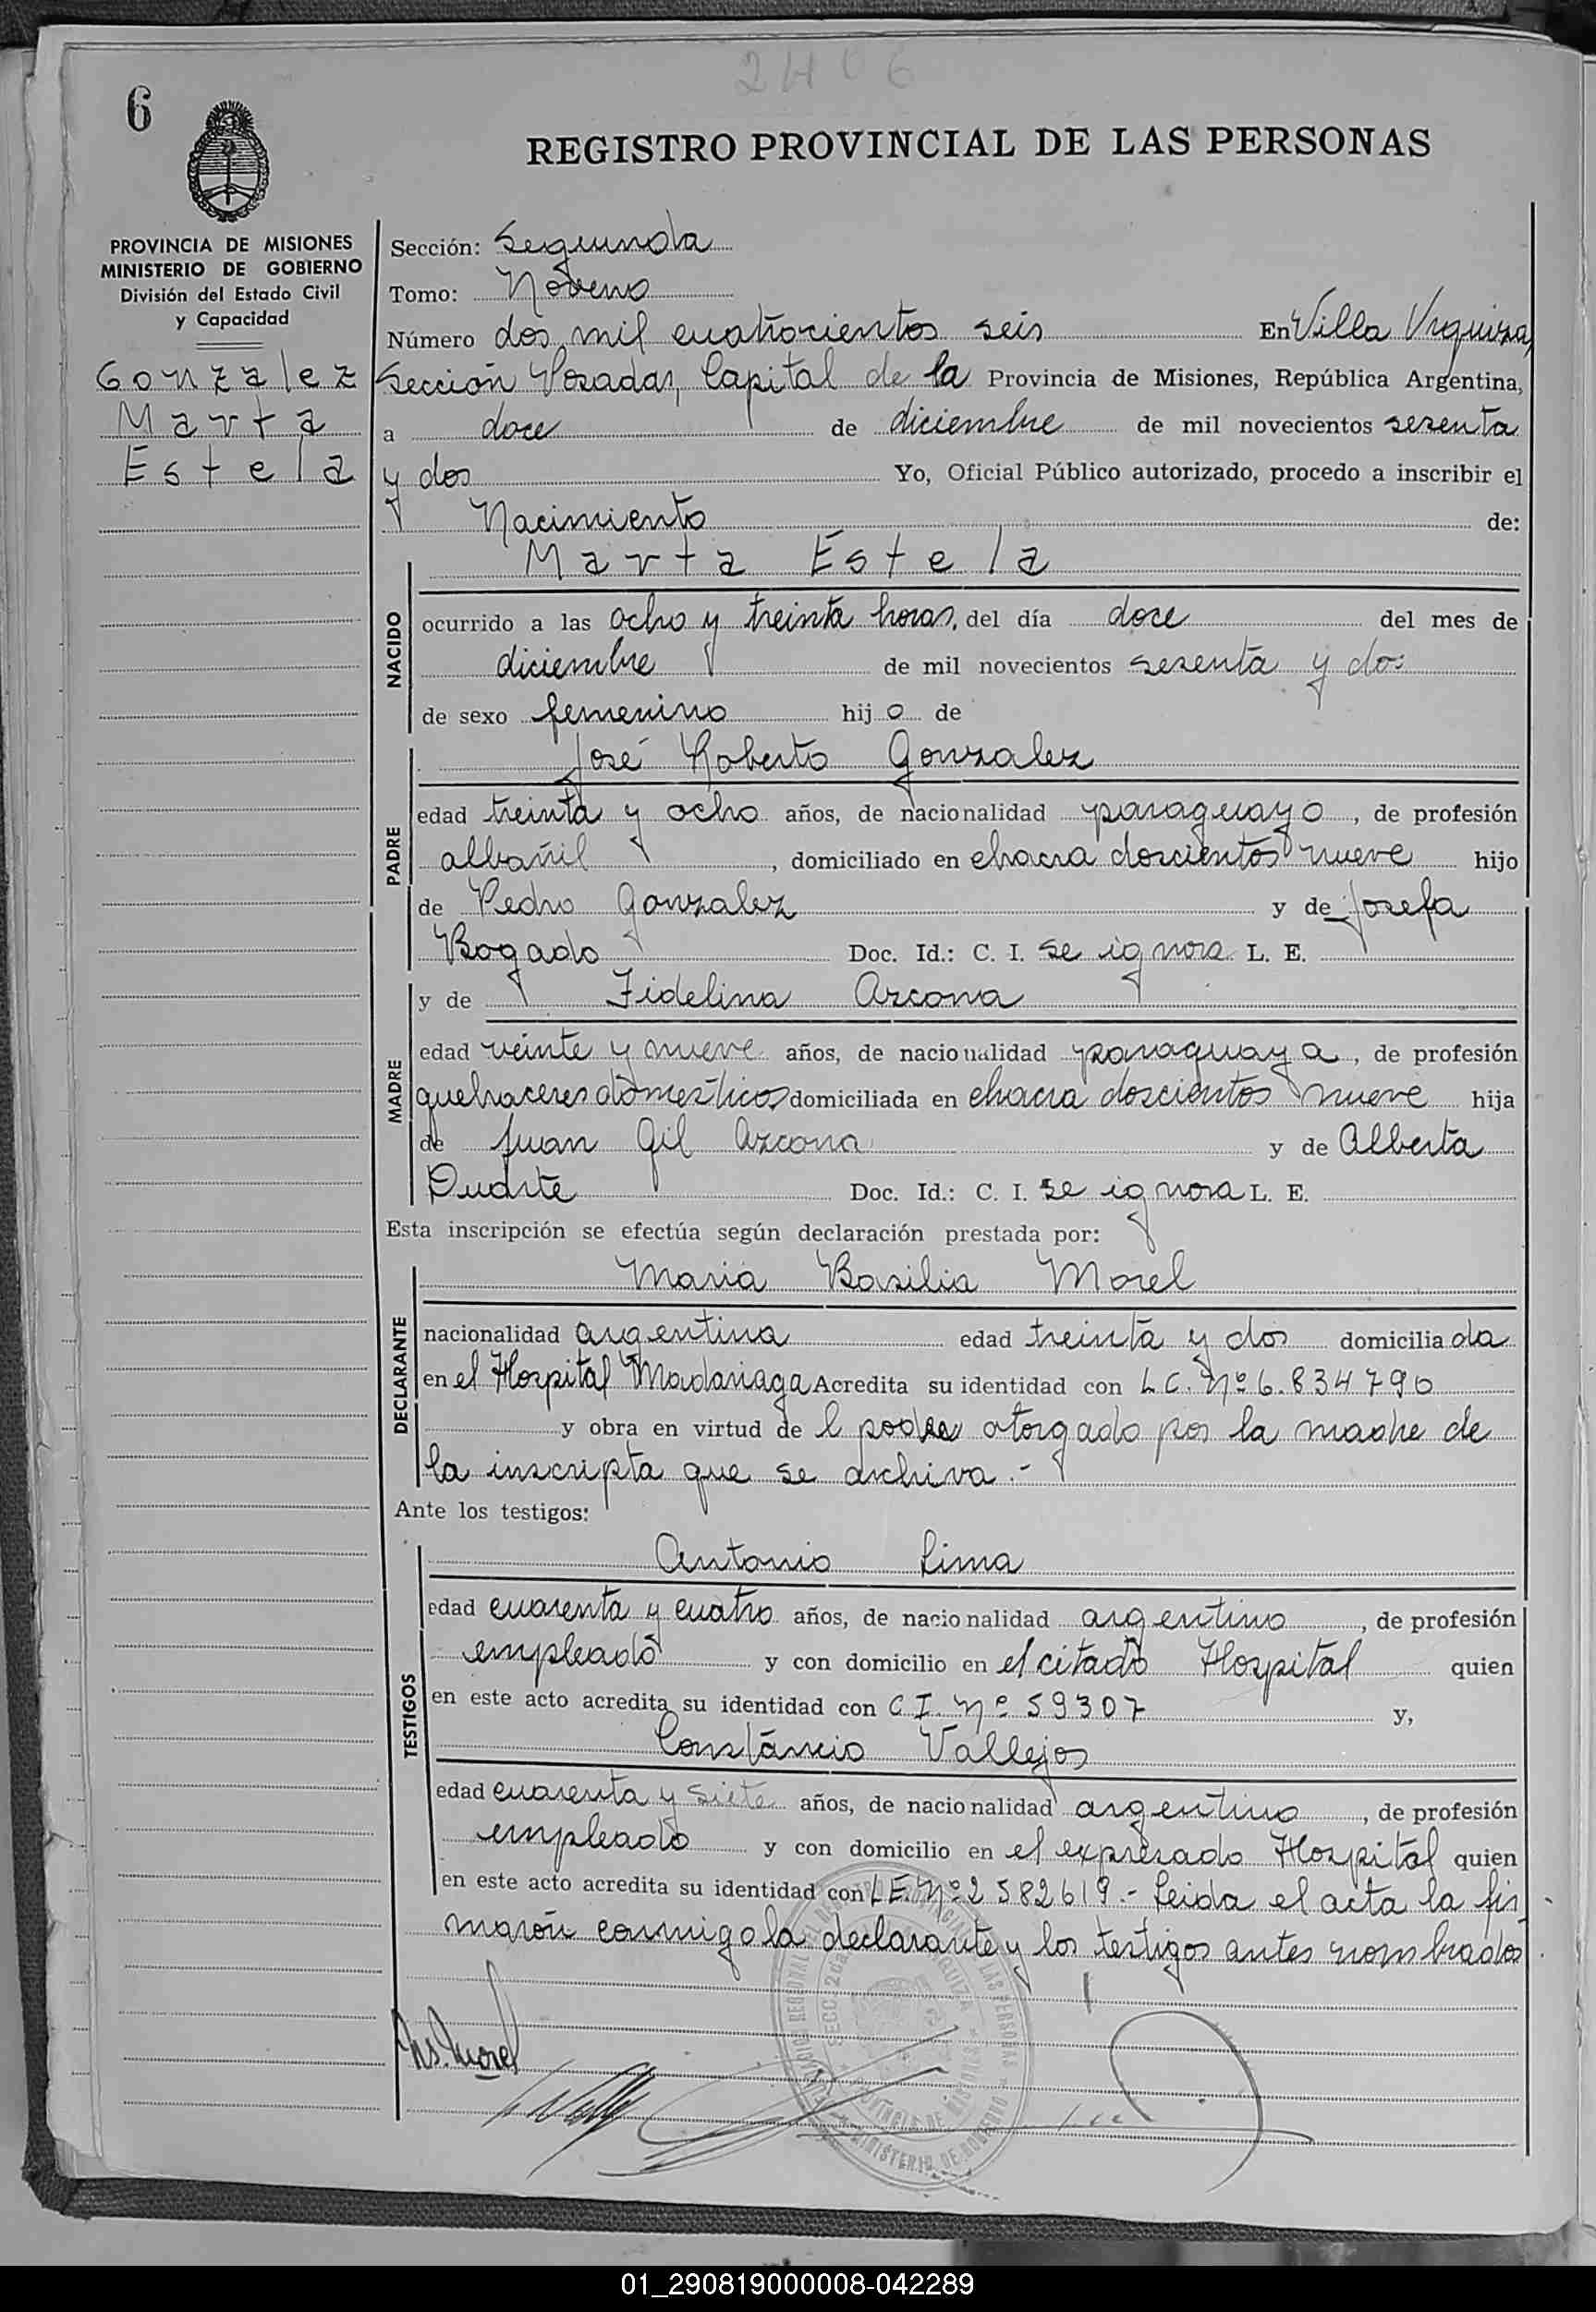 2406
6
REGISTRO PROVINCIAL DE LAS PERSONAS
PROVINCIA DE MISIONES
MINISTERIO DE GOBIERNO
División del Estado Civil
y Capacidad
Gonzalez
Marta
Estela
Sección: Segunda
Tomo: Noveno
Número dos mil cuatrocientos seis En Villa Urquiza,
Sección Posadas, Capital de la Provincia de Misiones, República Argentina,
a doce de diciembre de mil novecientos sesenta
y dos Yo, Oficial Público autorizado, procedo a inscribir el
Nacimiento de:
Marta Estela
NACIDO
ocurrido a las ocho y treinta horas, del día doce del mes de
diciembre de mil novecientos sesenta y dos
de sexo femenino hijo de
José Roberto Gonzalez
PADRE
edad treinta y ocho años, de nacionalidad paraguayo, de profesión
albañil, domiciliado en chacra doscientos nueve hijo
de Pedro Gonzalez y de Josefa
Bogado Doc. Id.: C. I. se ignora L. E.
y de Fidelina Azcona
MADRE
edad veinte y nueve años, de nacionalidad paraguaya, de profesión
quehaceres domésticos domiciliada en chacra doscientos nueve hija
de Juan Gil Azcona y de Alberta
Duarte Doc. Id.: C. I. se ignora L. E.
Esta inscripción se efectúa según declaración prestada por:
Maria Basilia Morel
DECLARANTE
nacionalidad argentina edad treinta y dos domiciliada
en el Hospital Madariaga Acredita su identidad con L.C. Nº 6.834790
y obra en virtud del poder otorgado por la madre de
la inscripta que se archiva.-
Ante los testigos:
Antonio Lima
TESTIGOS
edad cuarenta y cuatro años, de nacionalidad argentino, de profesión
empleado y con domicilio en el citado Hospital quien
en este acto acredita su identidad con C.I. Nº 59307 y,
Constáncio Vallejos
edad cuarenta y siete años, de nacionalidad argentino, de profesión
empleado y con domicilio en el expresado Hospital quien
en este acto acredita su identidad con L.E. Nº 2582619.- Leida el acta la fir-
marón conmigo la declarante y los testigos antes nombrados
Ms. Morel
01_290819000008-042289